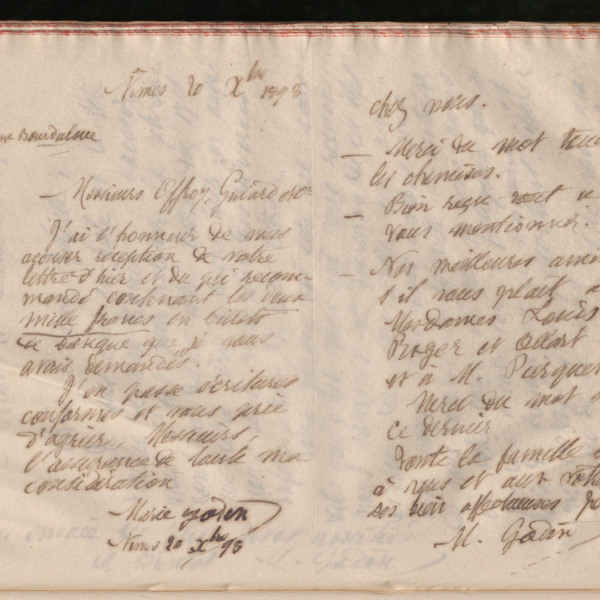 Nîmes 20 Xbre 1898
rue Bourdaloue
Messieurs Offroy, Guiard et Cie
J'ai l'honneur de vous
accuser réception de votre
lettre d'hier et du pli recom-
mandé contenant les deux
mille francs en billets
de banque que je vous
avais demandés.
J'en passe écritures
conformes et vous prie
d'agréer, Messieurs,
l'assurance de toute ma
considération
Marie Godin
Nîmes 20 Xbre 98
chez nous.
— Merci du mot
les chemises.
— Bien reçu tout
vous mentionnez.
— Nos meilleures
s'il vous plaît
Mesdames Louis
Roger et Allart
et à M. Purquet
Merci du mot
ce dernier
Toute la famille
à vous et aux vôtres
ses bien affectueuses
M. Godin